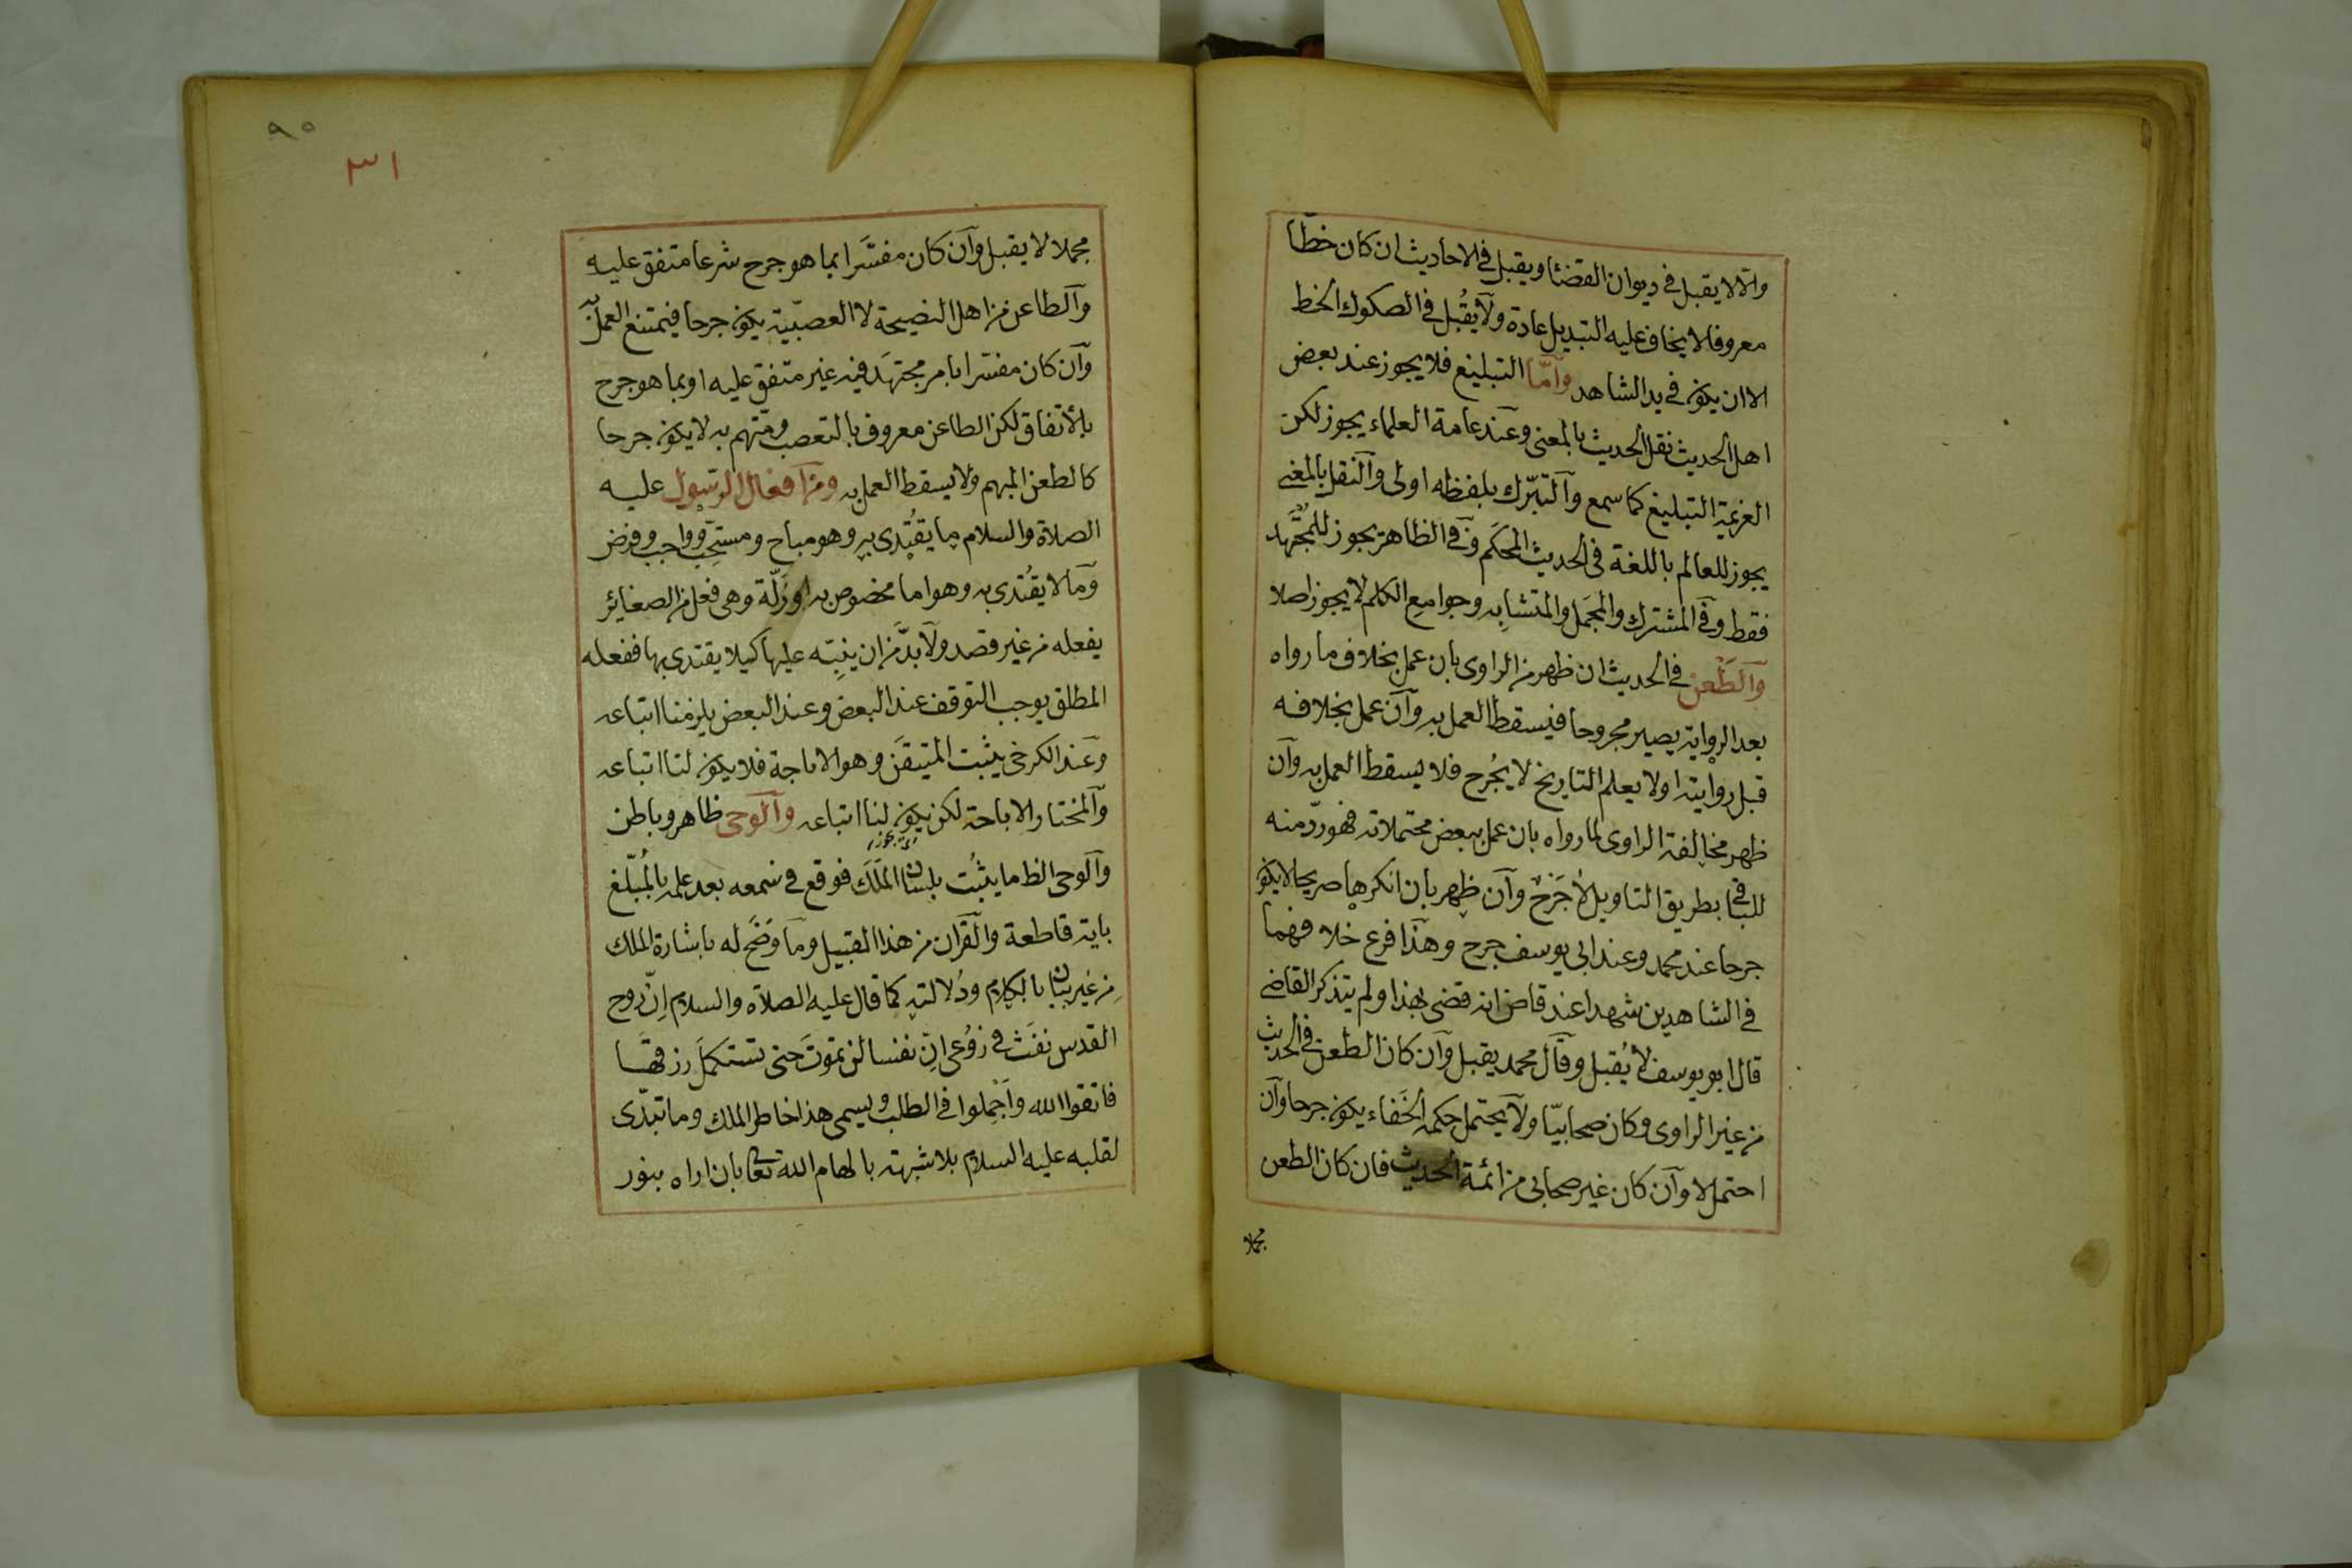 والّا لا يقبل فى ديوان القضا ويقبل فى الاحاديث ان كان خطّا
معروفا لا يخاف عليه التبديل عادة ولا يُقبل فى الصكوك الخط
الا ان يكون فى يد الشاهد وامّا التبليغ فلا يجوز عند بعض
اهل الحديث نقل الحديث بالمعنى وعند عامة العلماء يجوز لكن
العزيمة التبليغ كما سمع والتبرّك بلفظه اولى والنقل بالمعنى
يجوز للعالم باللغة فى الحديث المحكَم وفى الظاهر يجوز للمجتَهد
فقط وفى المشترك والمجمَل والمتشابِه وجوامع الكلم لا يجوز اصلا
والطّعن فى الحديث ان ظهر من الراوى بان عمل بخلاف ما رواه
بعد الرواية يصير مجروحا فيسقط العمل به وان عمل بخلافه
قبل روايته او لا يعلم التاريخ لا يُجرح فلا يسقط العمل به وان
ظهر مخالفة الراوى لما رواه بان عمل ببعض محتملاته فهو ردّ منه
للباقى بطريق التاويل لا جَرْحٌ وان ظهر بان انكرها صريحا لا يكون
جرحا عند محمد وعند ابى يوسف جرح وهذا فرع خلافهما
فى الشاهدين شهدا عند قاض انه قضى بهذا ولم يتذكر القاضى
قال ابو يوسف لا يُقبل وقال محمد يقبل وان كان الطعن فى الحديث
من غير الراوى وكان صحابيّا ولا يحتمل حكمه الخَفاء يكون جرحا وان
احتمل لا وان كان غير صحابى من ائمة الحديث فان كان الطعن
مجملا
٩٠
٣١
مجملا لا يقبل وان كان مفسَّرا بما هو جرح شرعا متفق عليه
والطاعن من اهل النصيحة لا العصبيّة يكون جرحا فيمتنع العمل به
وان كان مفسّرا بامر مجتهَد فيه غير متفق عليه او بما هو جرح
بالاتفاق لكن الطاعن معروف بالتعصب ومتّهم به لا يكون جرحا
كالطعن المبهم ولا يسقط العمل به ومن افعال الرسول عليه
الصلاة والسلام ما يقُتدى به وهو مباح ومستحّب وواجب وفرض
وما لا يقُتدى به وهو اما مخصوص به او زَلّة وهى فعل من الصغائر
يفعله من غير قصد ولا بدّ من ان ينبِّه عليها كيلا يقتدى بها ففعله
المطلق يوجب التوقف عند البعض وعند البعض يلزمنا اتباعه
وعند الكرخى يثبت المتيقَن وهو الاباحة فلا يكون لنا اتباعه
والمختار الاباحة لكن يكون لنا اتباعه والوحى ظاهر وباطن
والوحى الظ ما يثبُت بلسان الملَك فوقع فى سمعه بعد علمه بالمُبلّغ
باية قاطعة والقران من هذا القبيل وما وَضَح له باشارة الملك
مِن غير بيان بالكلام ودُلالته كما قال عليه الصلاة والسلام اِنّ روح
القدس نفَث فى رَوُعى انّ نفسا لن تموتَ حتى تستكملَ رزقها
فاتقوا الله واَجْمِلوا فى الطلب ويسمى هذا خاطر الملك وما تبدّى
لقلبه عليه السلام بلا شبهة بالهام الله تعالى بان اراه بنور